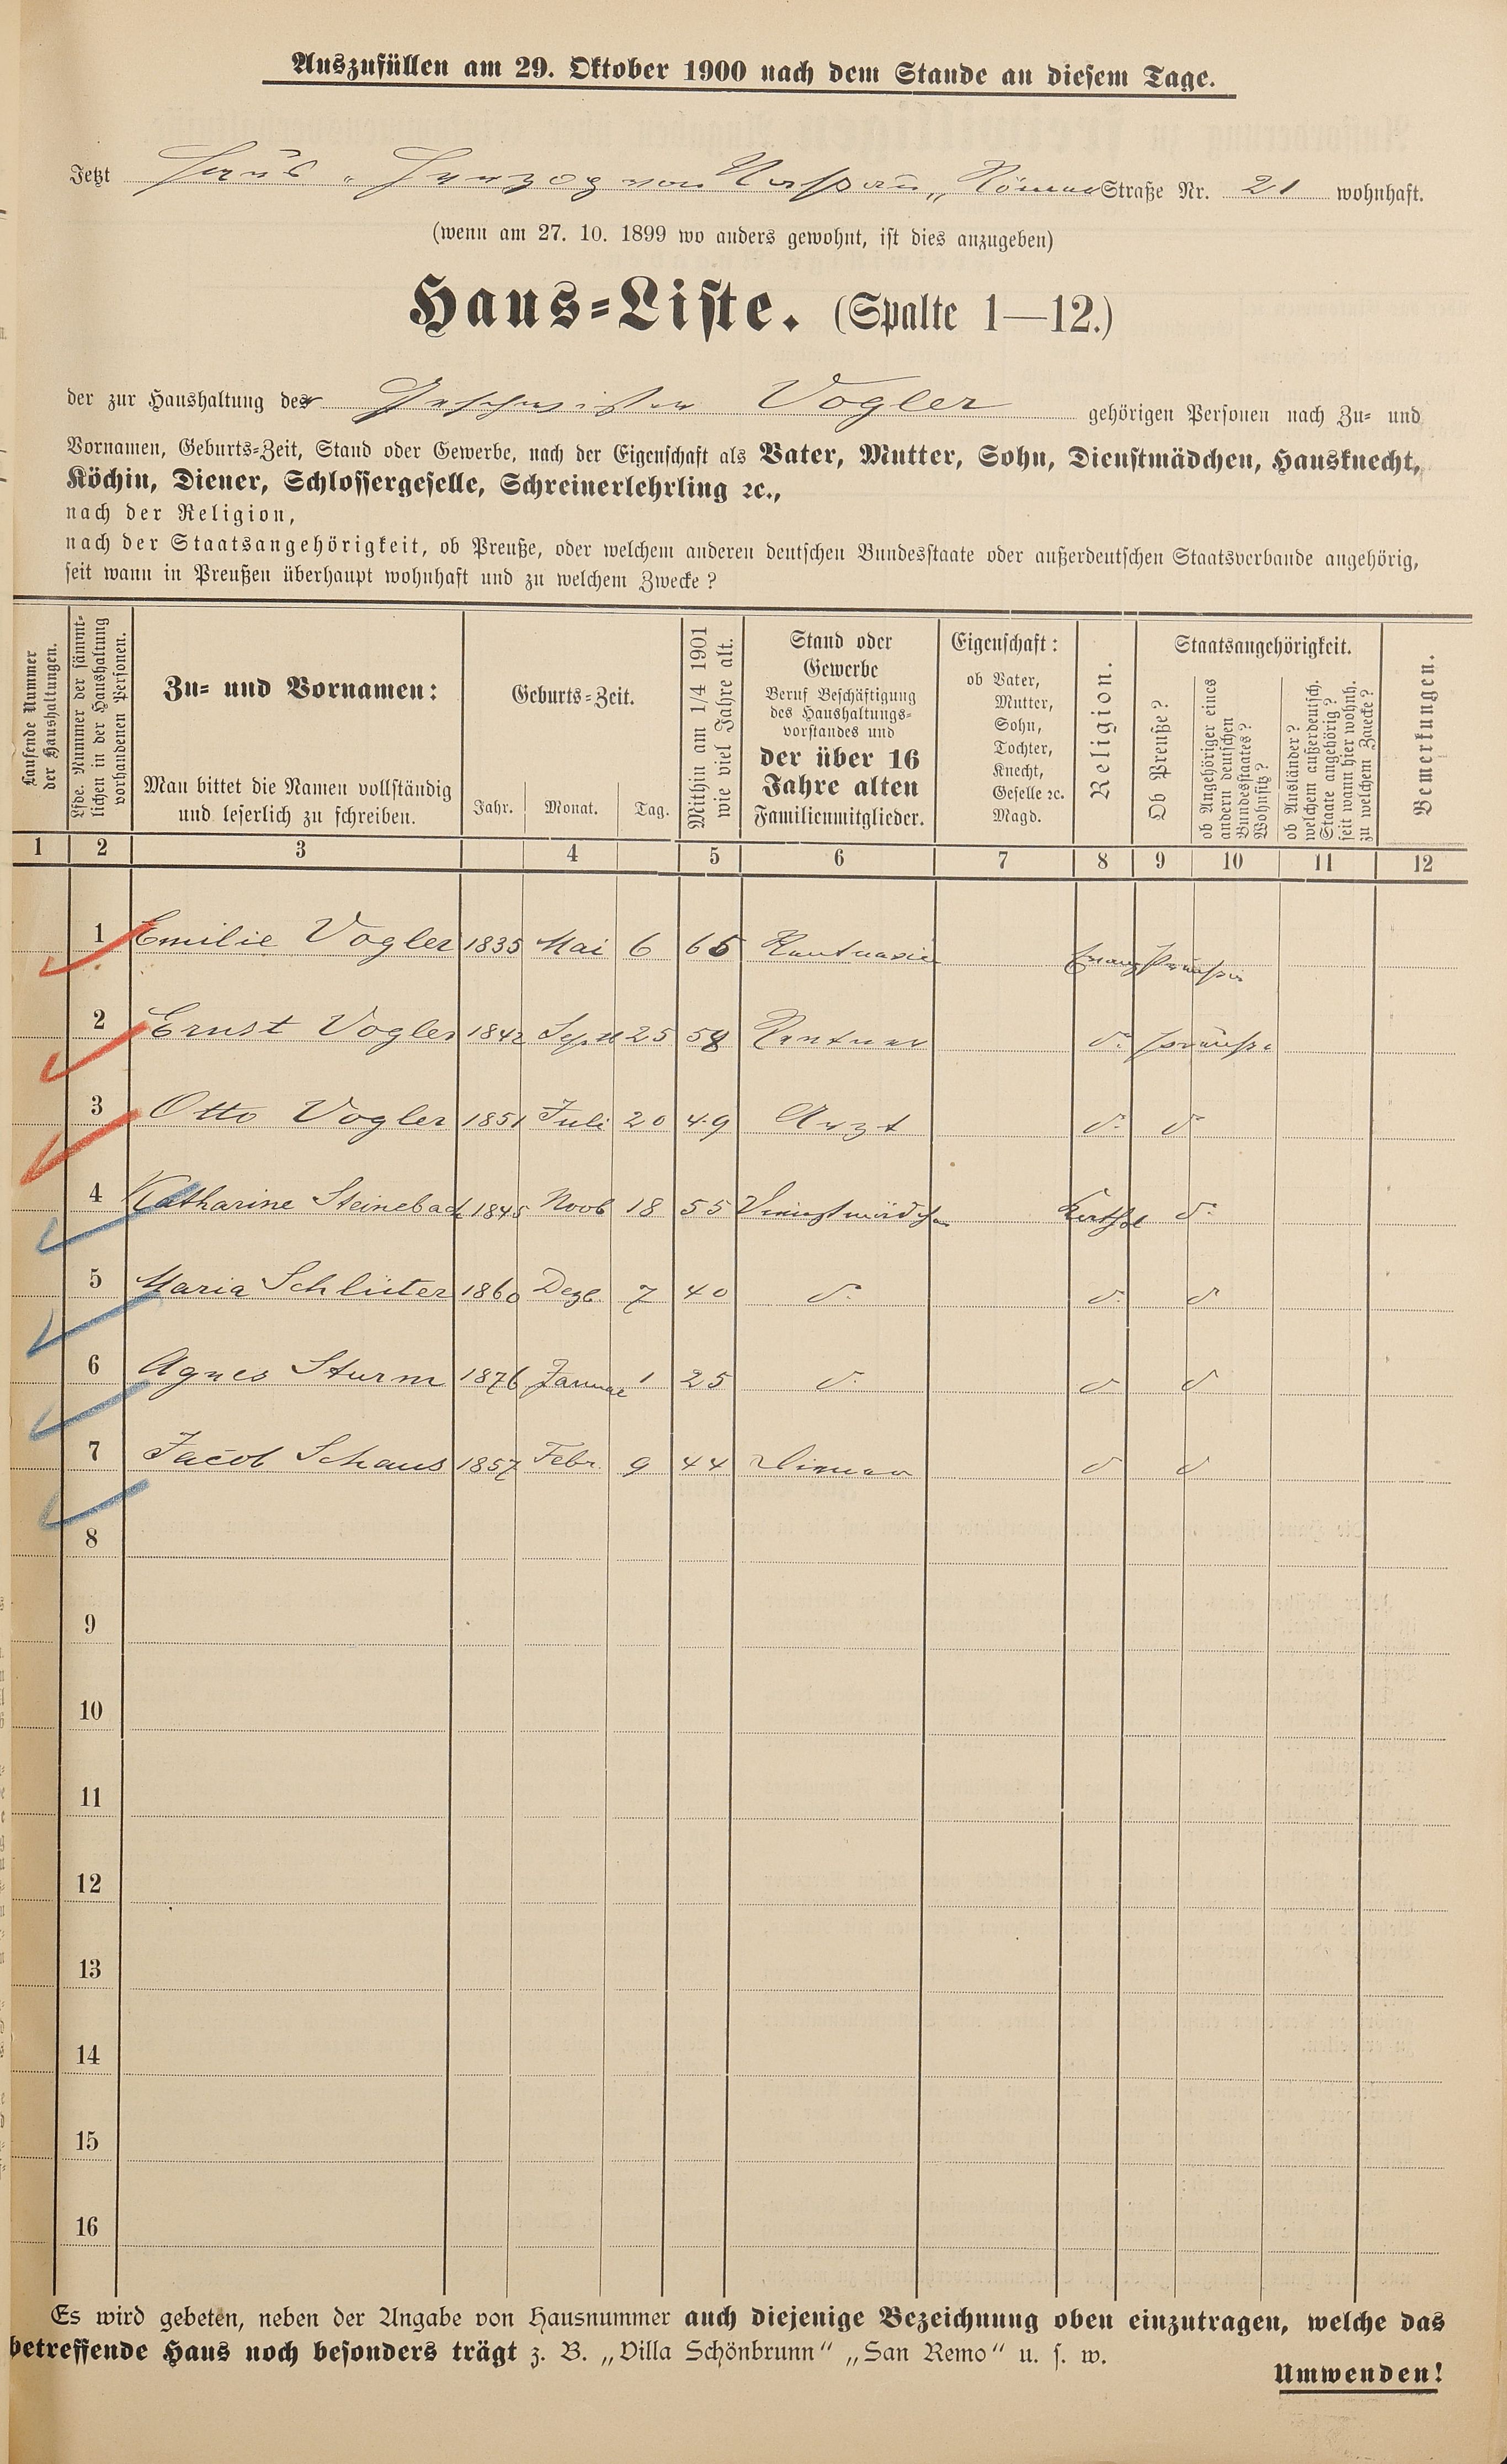 Auszufüllen am 29. Oktober 1900 nach dem Stande an diesem Tage.
Jetzt Haus „Herzog von Nassau“ Römer Straße Nr. 21 wohnhaft.
(wenn am 27. 10. 1899 wo anders gewohnt, ist dies anzugeben)
Haus-Liste. (Spalte 1—12.)
der zur Haushaltung der Geschwister Vogler gehörigen Personen nach Zu- und
Vornamen, Geburts-Zeit, Stand oder Gewerbe, nach der Eigenschaft als Vater, Mutter, Sohn, Dienstmädchen, Hausknecht,
Köchin, Diener, Schlossergeselle, Schreinerlehrling ꝛc.,
nach der Religion,
nach der Staatsangehörigkeit, ob Preuße, oder welchem anderen deutschen Bundesstaate oder außerdeutschen Staatsverbande angehörig,
seit wann in Preußen überhaupt wohnhaft und zu welchem Zwecke?
Laufende Nummer
der Haushaltungen.
Lfde. Nummer der sämmt-
lichen in der Haushaltung
vorhandenen Personen.
Zu- und Vornamen:
Man bittet die Namen vollständig
und leserlich zu schreiben.
Geburts-Zeit.
Jahr. Monat. Tag.
Mithin am 1/4 1901
wie viel Jahre alt.
Stand oder
Gewerbe
Beruf Beschäftigung
des Haushaltungs-
vorstandes und
der über 16
Jahre alten
Familienmitglieder.
Eigenschaft:
ob Vater,
Mutter,
Sohn,
Tochter,
Knecht,
Geselle ꝛc.
Magd.
Religion.
Staatsangehörigkeit.
Ob Preuße?
ob Angehöriger eines
andern deutschen
Bundesstaates?
Wohnsitz?
ob Ausländer?
welchem außerdeutsch.
Staate angehörig?
seit wann hier wohnh.
zu welchem Zwecke?
Bemerkungen.
1 2 3 4 5 6 7 8 9 10 11 12
1 Emilie Vogler 1835 Mai 6 65 Rentnerin Evang Preußin
2 Ernst Vogler 1842 Sept 25 58 Rentner do. Preuße
3 Otto Vogler 1851 Juli 20 49 Arzt do. do
4 Katharine Steinebach 1845 Novb 18 55 Dienstmädchen Kathol do.
5 Maria Schlüter 1860 Dezb. 7 40 do. do. do
6 Agnes Sturm 1876 Januar 1 25 do. do do
7 Jacob Schaus 1857 Febr. 9 44 Diener do do
8
9
10
11
12
13
14
15
16
Es wird gebeten, neben der Angabe von Hausnummer auch diejenige Bezeichnung oben einzutragen, welche das
betreffende Haus noch besonders trägt z. B. „Villa Schönbrunn“ „San Remo“ u. s. w.
Umwenden!